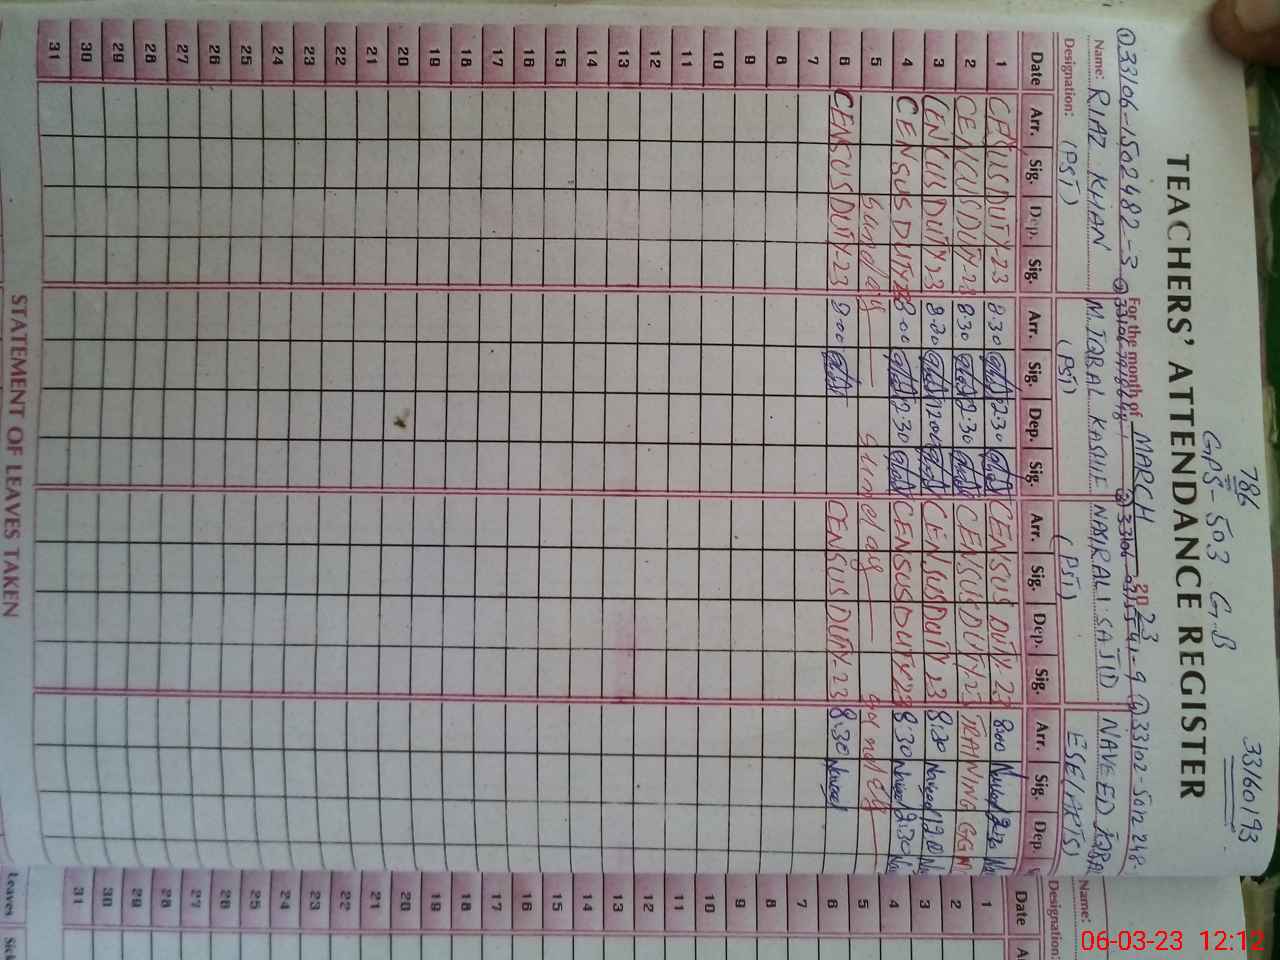 786
33160193
GPS-503 G.B
TEACHERS' ATTENDANCE REGISTER
For the month of MARCH 2023
① 33106-1502482-3
④ 33102-5012248-
Name: RIAZ KHAN M.IQBAL KASHIF NASIR ALI SAJID NAVEED IQBAL
Designation: (PST) (PST) (PST) ESE(ARTS)
Date Arr. Sig. Dep. Sig. Arr. Sig. Dep. Sig. Arr. Sig. Dep. Sig. Arr. Sig. Dep.
1 CENSUS DUTY-23 8.30 12.30 CENSUS DUTY-23 8:00 Naveed
2 CENCUS DUTY-23 8.30 12.30 CENSUS DUTY-23 TRAINING GGM
3 CENCUS DUTY 23 8.30 1200 CENSUS DUTY 23 8:30 Naveed 12
4 CENSUS DUTY 23 8.00 12.30 CENSUS DUTY 23 8:30 Naveed 12.30
5 Sunday Sunday Sunday
6 CENSUS DUTY-23 8.00 CENSUS DUTY-23 8.30 Naveed
7
8
9
10
11
12
13
14
15
16
17
18
19
20
21
22
23
24
25
26
27
28
29
30
31
STATEMENT OF LEAVES TAKEN
Name:
Designation:
Date
1
2
3
4
5
6
7
8
9
10
11
12
13
14
15
16
17
18
19
20
21
22
23
24
25
26
27
28
29
30
31
Leaves
Sick
06-03-23 12:12